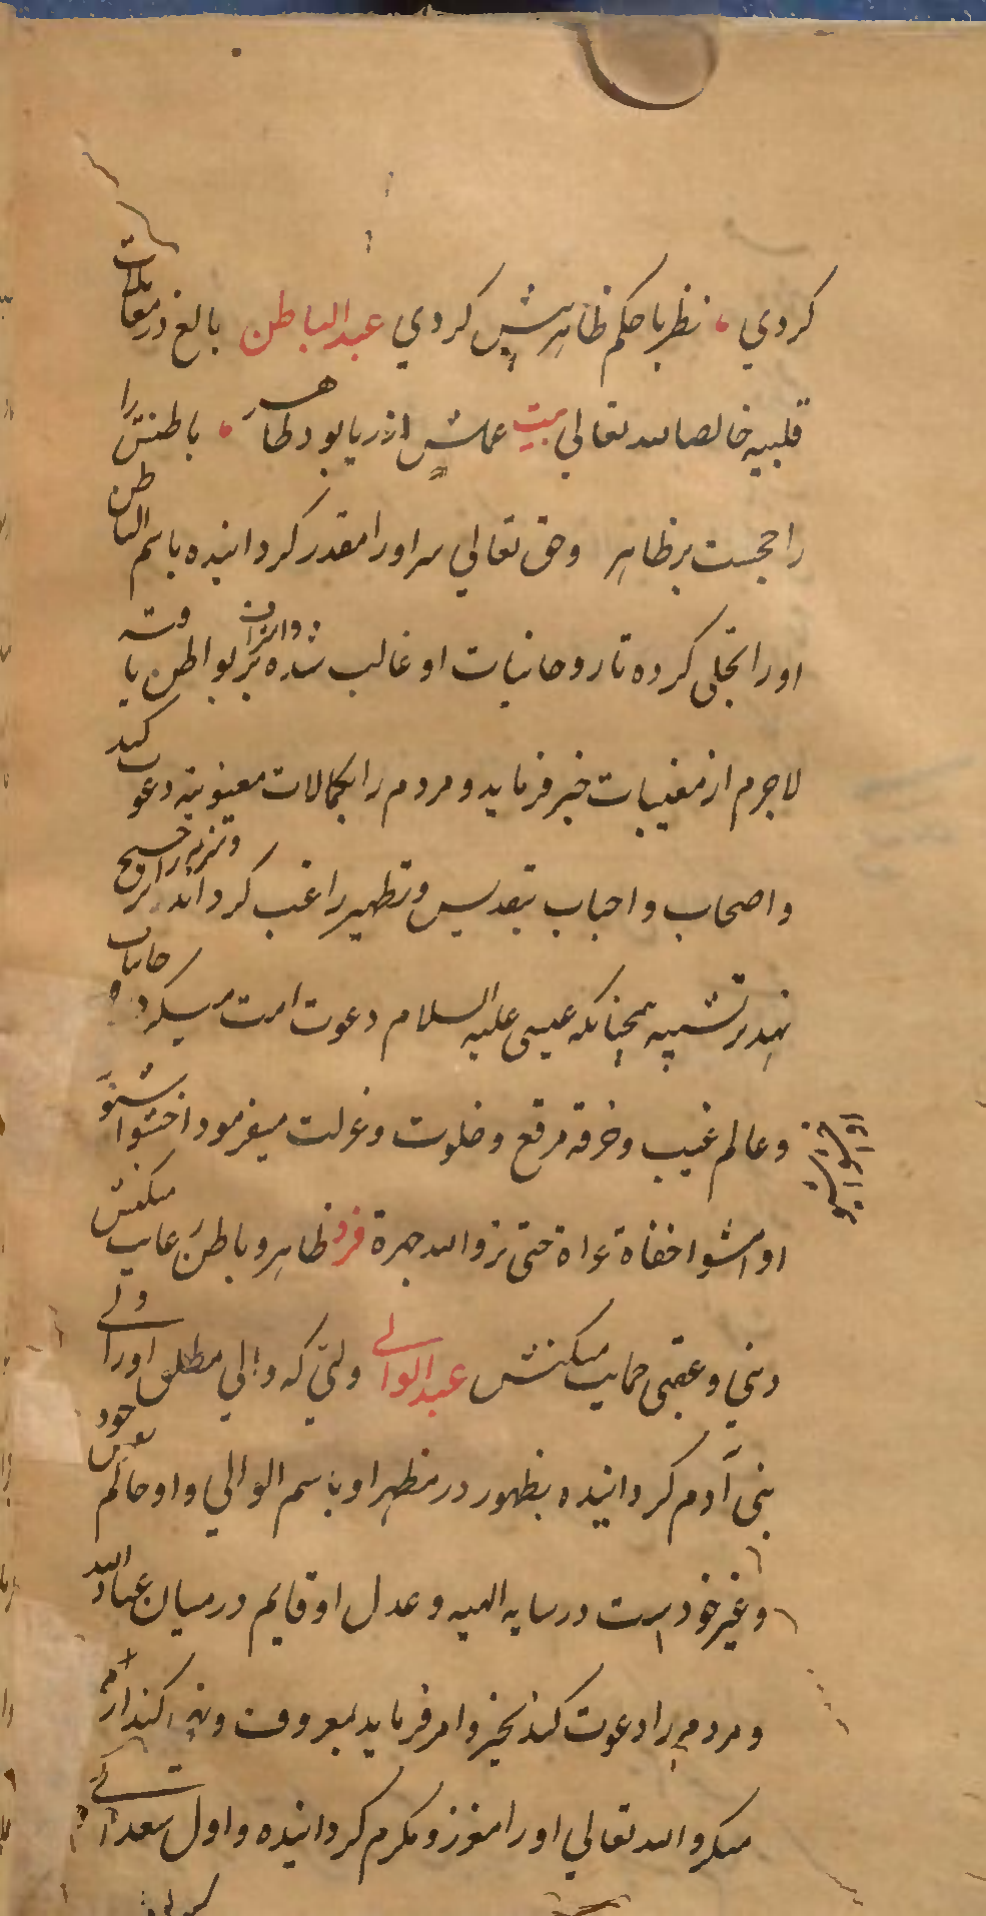 کردي ، نظر با حکم ظاهرش کردي عبد الباطن بالغ در معاملات
قلبیه خالصا لله تعالی بیت عملش از ریا بود طاهر ، باطنش را
را حجست بر ظاهر وحق تعالي سر اورا مقدر کردانیده باسم الباطن
اورا تجلی کرده تا روحانیات او غالب شده بر بواطن یا
لاجرم از مغیبات خبر فرماید و مردم را بکمالات معنویه دعوت کند
واصحاب و احباب بتقدیس و تطهیر راغب کرداند و تنزیه را ترجیح
نهد بر تشبیه همچنانکه عیسی علیه السلام دعوت امت میکرد
و عالم غیب و خرقه مرقع و خلوت و عزلت میفرمود اخشوا شنوا
او امشوا حفاة عراة حتی تروا الله جهرة فرد ظاهر و باطن
دینی و عقبی حمایت میکنش عبد الوالي ولیّ که والي مطلق اورا
بنی آدم کردانیده بظهور در مظهر او باسم الوالي و او حاکم نفس خود
و غیر خود است در سایه الهیه و عدل او قایم در میان عباد الله
و مردم را دعوت کند بخیر و امر فرماید بمعروف و نهی کند از
منکر و الله تعالي اورا معزز و مکرم کردانیده و اول